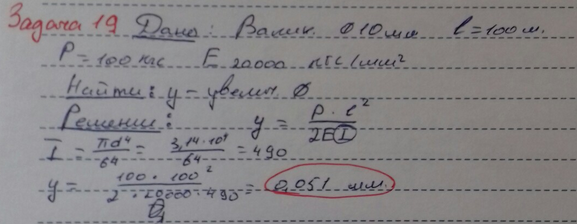 Задача 19 Дано: Валик ∅10мм l=100м.
P=100кгс E 20000 кгс/мм²
Найти: y – увелич ∅
Решение: y = P·l² / 2EI
I = πd⁴/64 = 3,14·10⁴/64 = 490
y = 100·100² / 2·20000·490 = 0,051 мм.